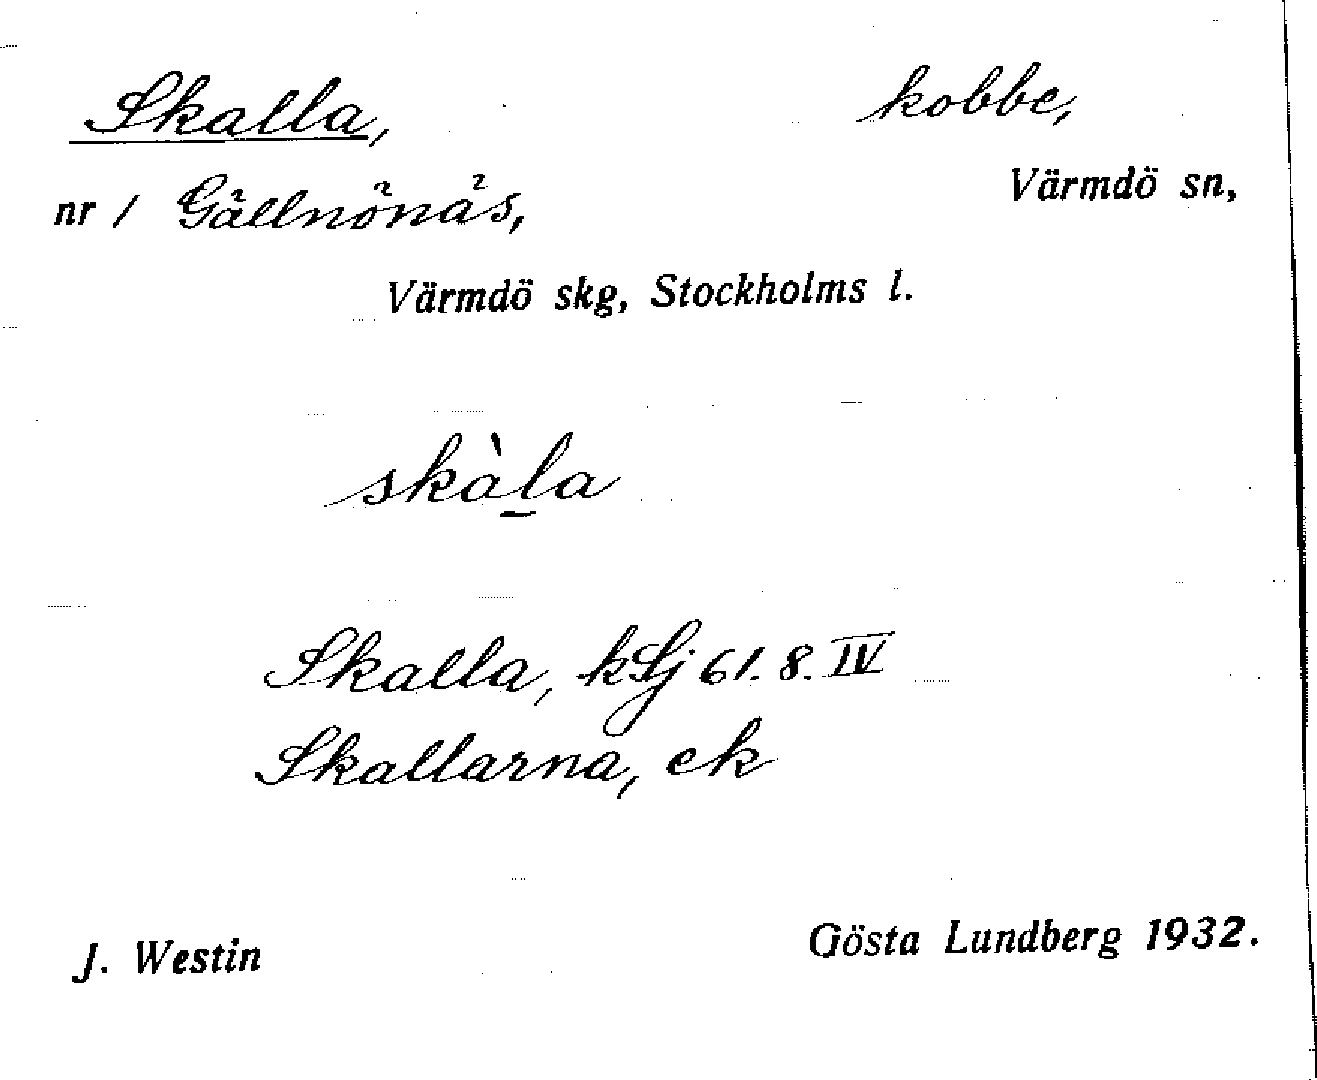 Skalla, kobbe,
nr 1 Gällnönäs, Värmdö sn,
Värmdö skg, Stockholms l.
skàl̠a
Skalla, kSj 61.8.IV
Skallarna, ek
J. Westin Gösta Lundberg 1932.